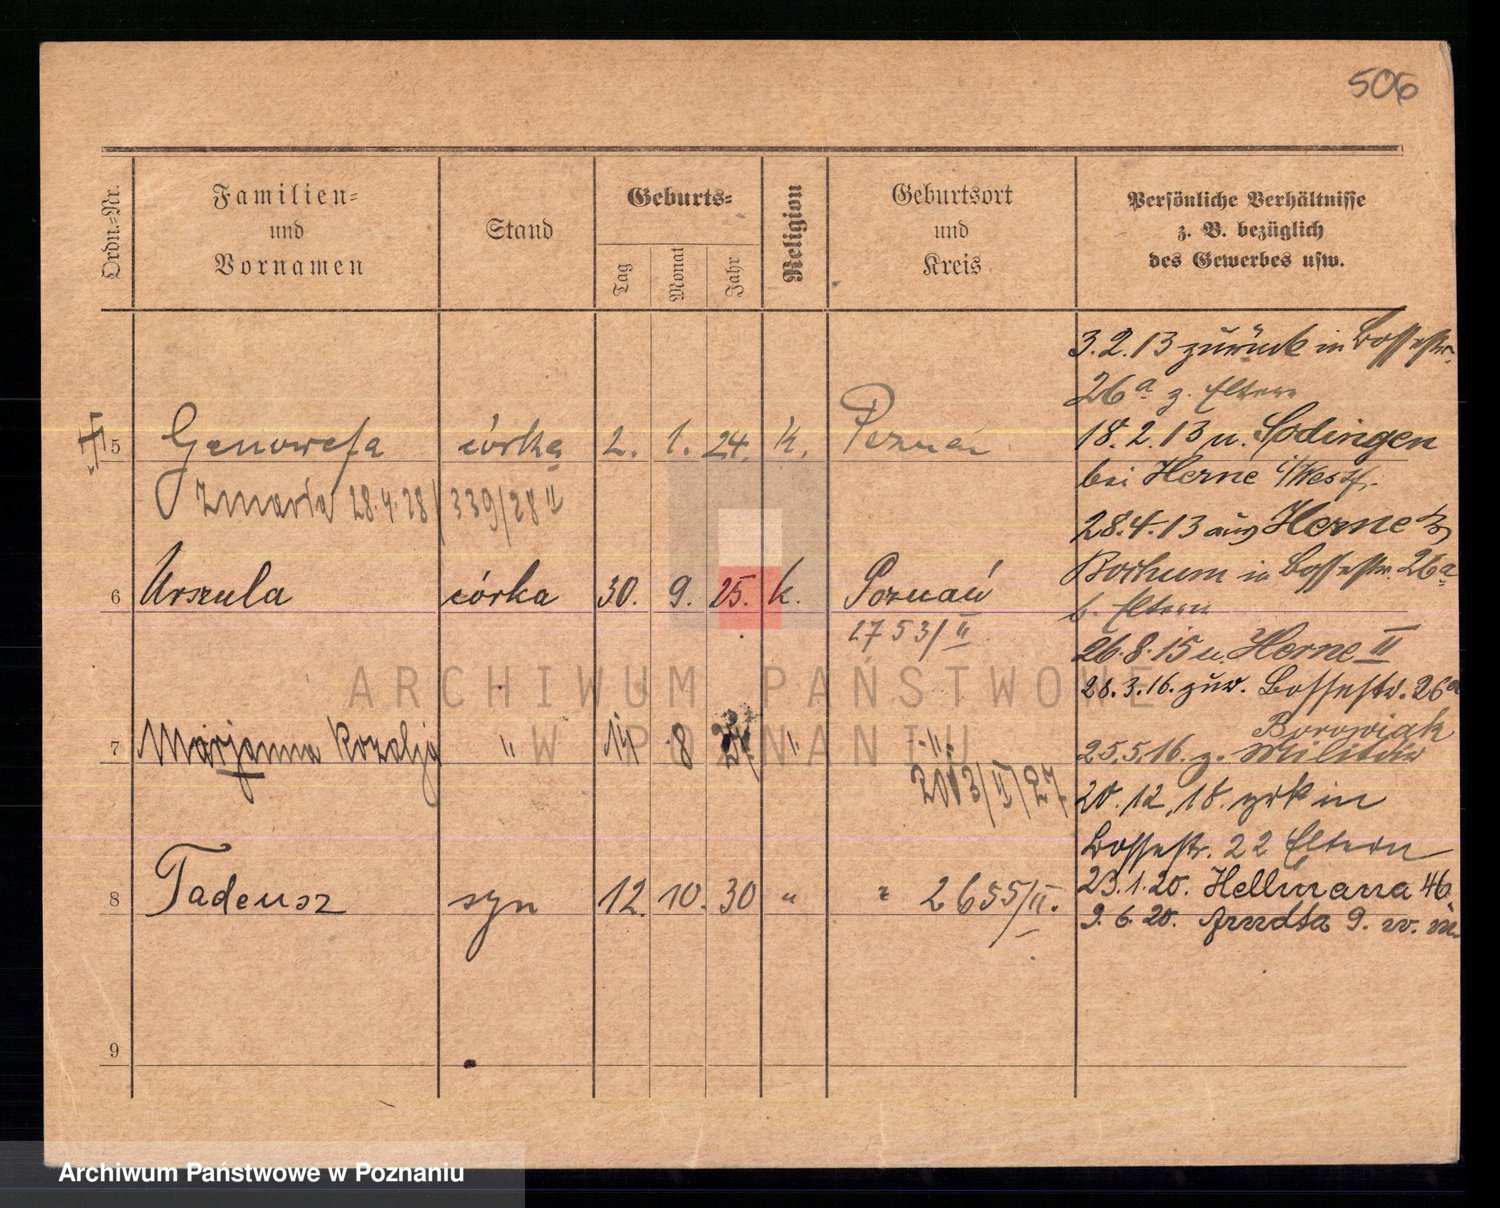 506
Ordn.=Nr.
Familien=
und
Vornamen
Stand
Geburts=
Tag
Monat
Jahr
Religion
Geburtsort
und
Kreis
Persönliche Verhältnisse
z. B. bezüglich
des Gewerbes usw.
5 Genowefa córka 2. 1. 24. k. Poznań
Zmarła 28.4.28 339/28 II
6 Urszula córka 30. 9. 25. k. Poznań
1753/II
7 Marjanna Rozalja " 14 8 27 " "
2013/II/27
8 Tadeusz syn 12. 10. 30 " " 2655/II.
9
3.2.13 zurück in Bossestr.
26a z. Eltern
18.2.13 n. Sodingen
bei Herne i/Westf.
28.4.13 aus Herne
Bochum in Bossestr. 26a
b. Eltern
26.8.15 n. Herne II
28.3.16. zur. Bossestr. 26a
Borowiak
25.5.16. z. Militär
20.12.18. zrk in
Bossestr. 22 Eltern
23.1.20. Hellmanna 46.
9.6.20. Arndta 9.
ARCHIWUM PAŃSTWOWE
W POZNANIU
Archiwum Państwowe w Poznaniu